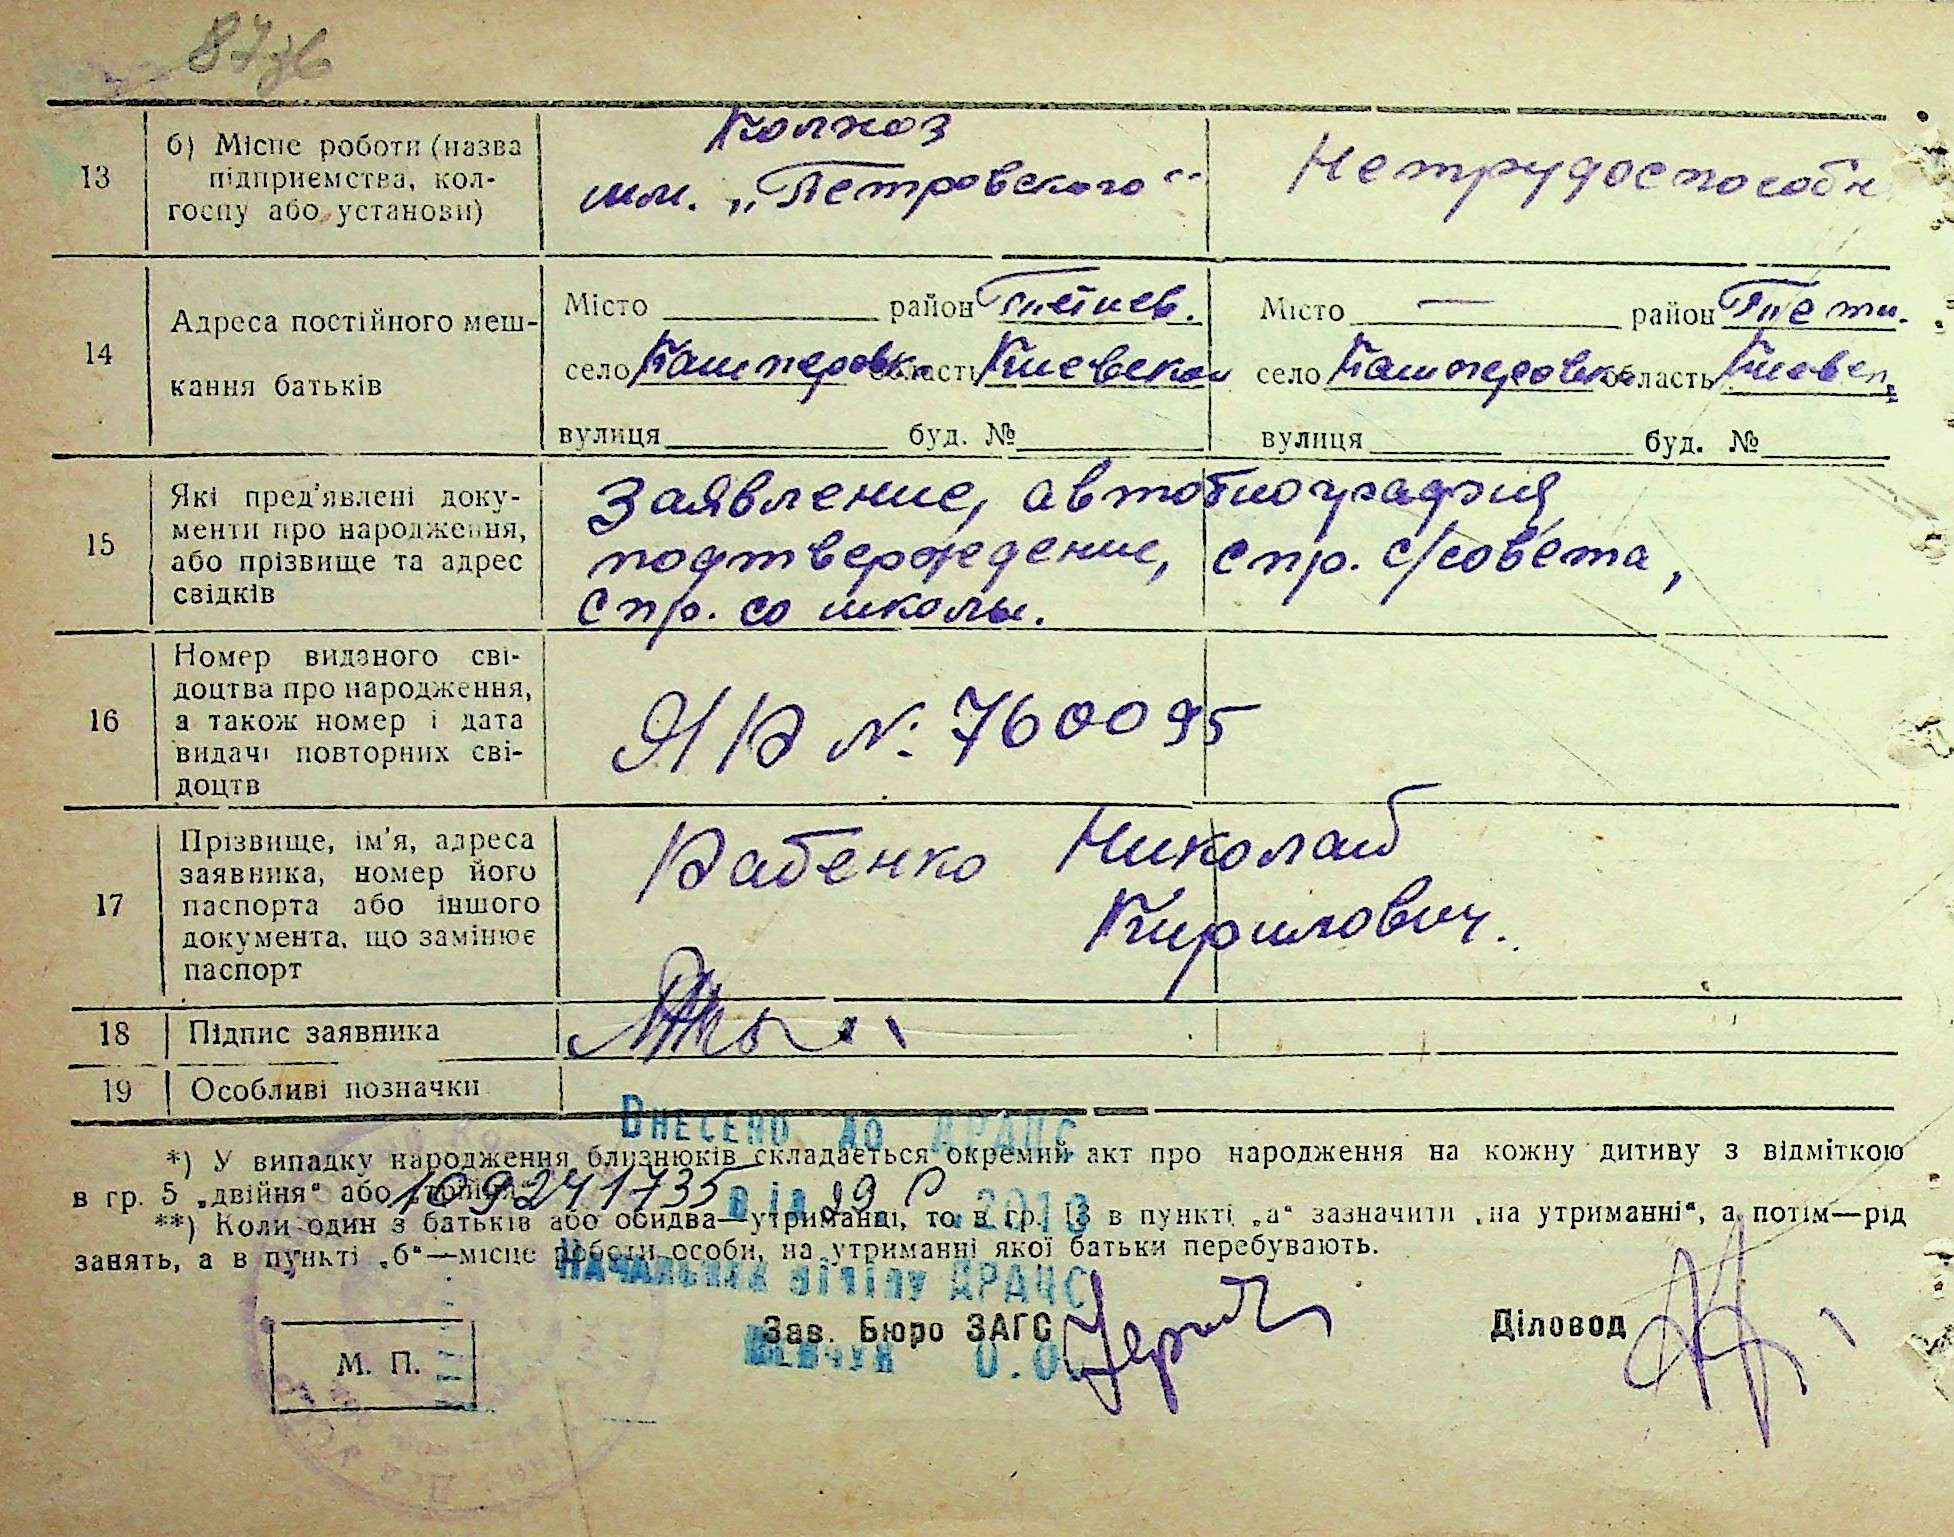 87
13
б) Місце роботи (назва
підприємства, кол-
госпу або установи)
Колхоз
им. „Петровского“
Нетрудоспособн
14
Адреса постійного меш-
кання батьків
Місто район Тетиев.
село Кашперовка область Киевская
вулиця буд. №
Місто — район Тети.
село Кашперовка область Киевск,
вулиця буд. №
15
Які пред'явлені доку-
менти про народження,
або прізвище та адрес
свідків
Заявление, автобиография
подтверждение, спр. с/совета,
спр. со школы.
16
Номер виданого сві-
доцтва про народження,
а також номер і дата
видачі повторних сві-
доцтв
№ 760095
17
Прізвище, ім'я, адреса
заявника, номер його
паспорта або іншого
документа, що замінює
паспорт
Рабенко Николай
Кирилович.
18
Підпис заявника
19
Особливі позначки
Внесено до ДРАЦС
*) У випадку народження близнюків складається окремий акт про народження на кожну дитину з відміткою
в гр. 5 „двійня“ або „трійня“
109241735 від 29 2013
**) Коли один з батьків або обидва—утриманці, то в гр. 13 в пункті „а“ зазначити „на утриманні“, а потім—рід
занять, а в пункті „б“—місце роботи особи, на утриманні якої батьки перебувають.
Начальник відділу ДРАЦС
Зав. Бюро ЗАГС
Діловод
О.О.
М. П.